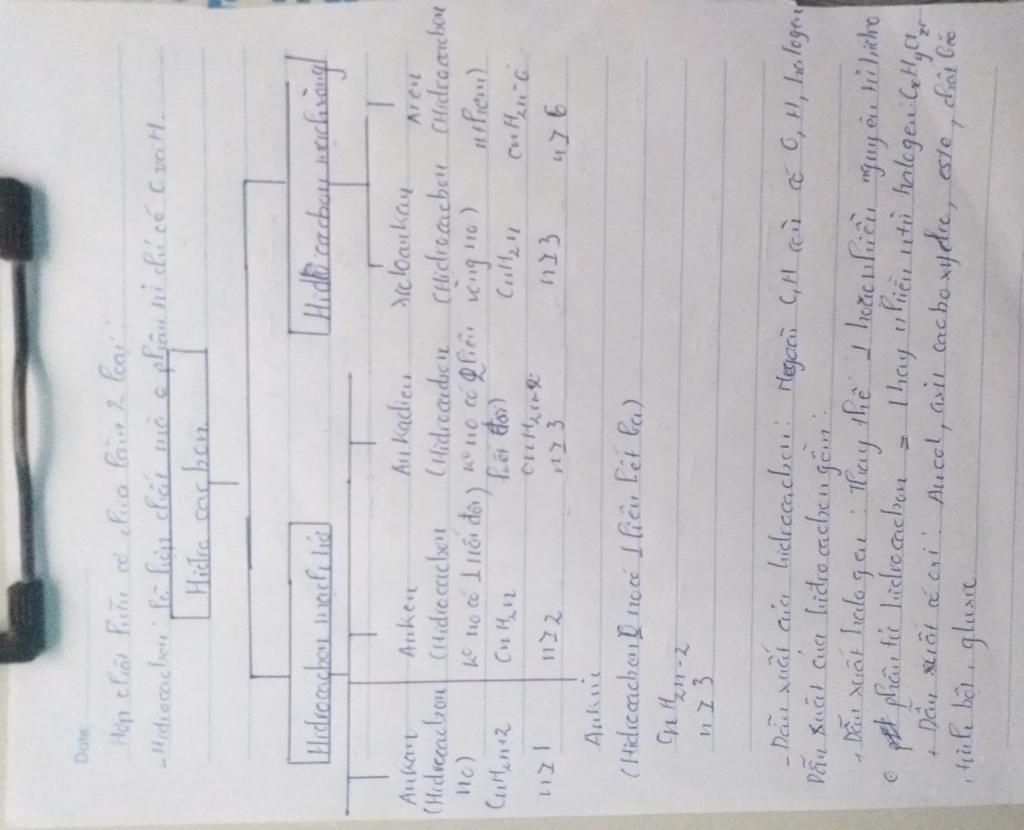 Date:
Hợp chất hữu cơ chia làm 2 loại:
- Hidrocacbon: là hợp chất mà phân tử chỉ có C và H.
Hidro cacbon
Hidrocacbon mạch hở
Hidrocacbon mạch vòng
Ankan
(Hidrocacbon
no)
CnH2n+2
n≥1
Anken
(Hidrocacbon
K° no có 1 nối đôi)
CnH2n
n≥2
Ankadien
(Hidrocacbon
K° no có 2 liên
kết đôi)
CnH2n-2
n≥3
Xicloankan
(Hidrocacbon
vòng no)
CnH2n
n≥3
Aren
(Hidrocacbon
thơm)
CnH2n-6
n≥6
Ankin
(Hidrocacbon no có 1 liên kết ba)
CnH2n-2
n≥3
- Dẫn xuất của hidrocacbon: Ngoài C,H còn có O, H, halogen
Dẫn xuất của hidrocacbon gồm:
+ Dẫn xuất halogen: thay thế 1 hoặc nhiều nguyên tử hidro
phân tử hidrocacbon = 1 hay nhiều ntử halogen: CxHyClz
+ Dẫn xuất có oxi: Ancol, axit cacboxylic, este, chất béo
, tinh bột, gluxit